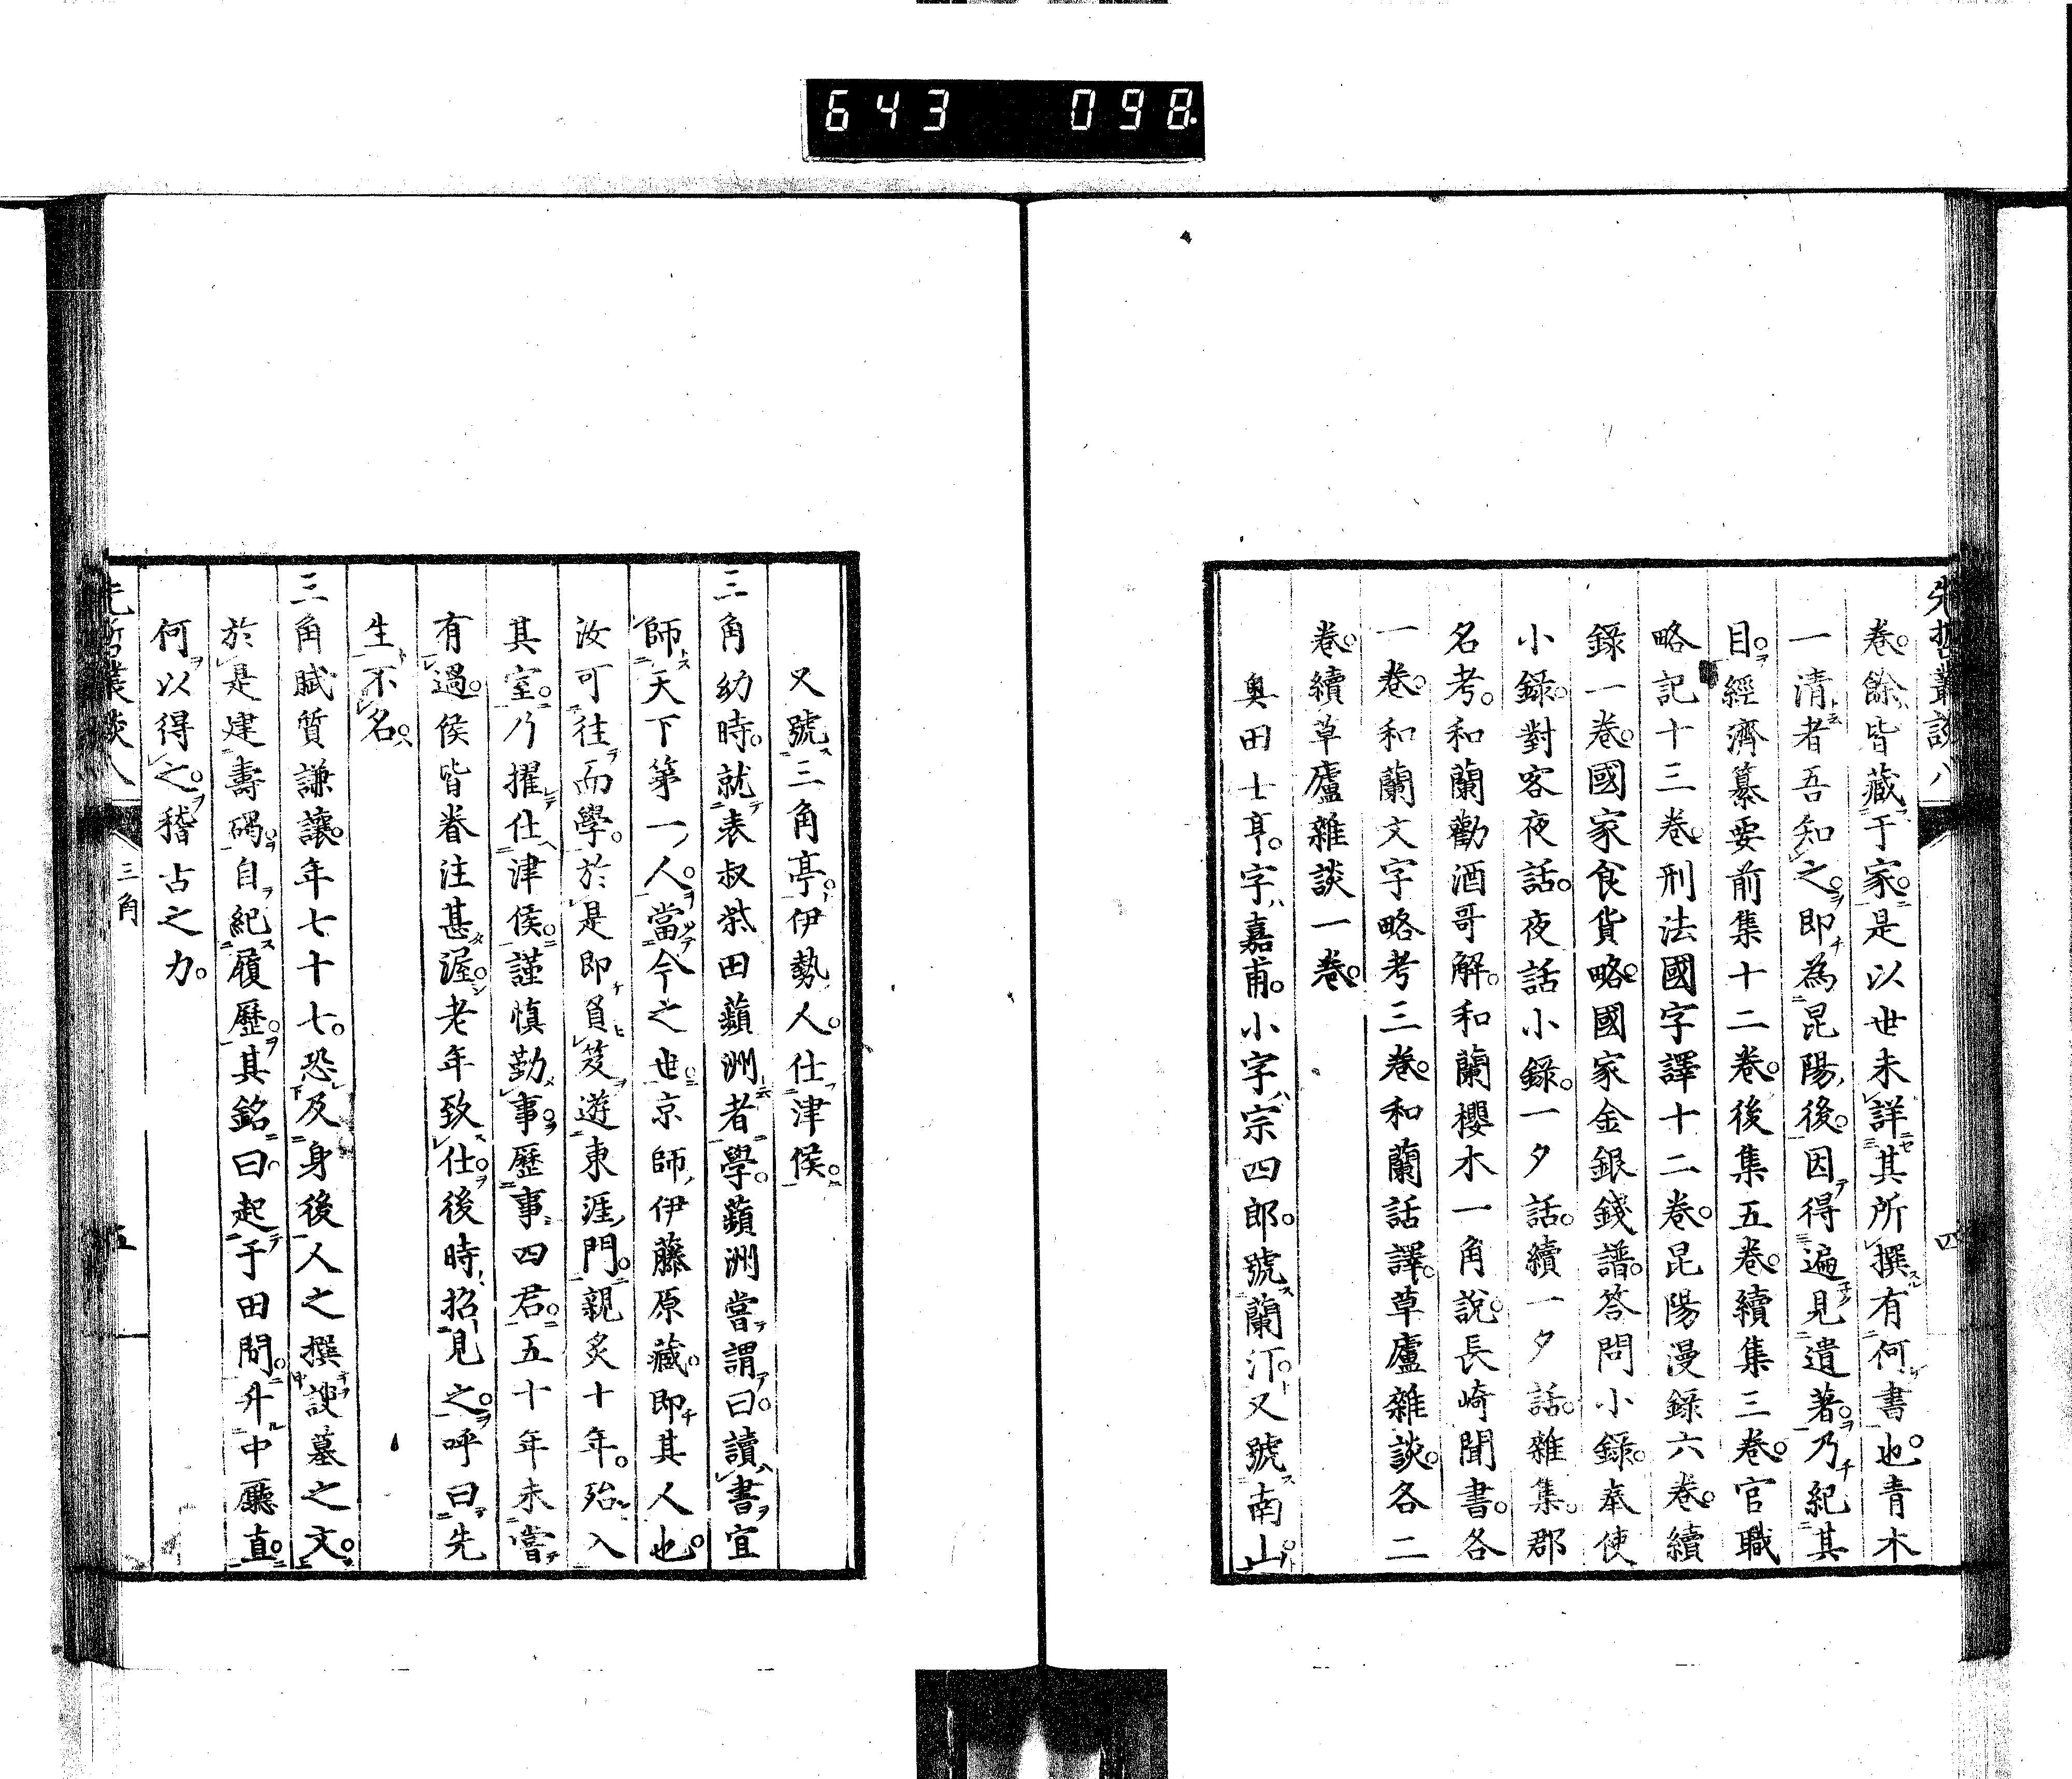 643 098.
先哲叢談八
四
卷。餘皆藏于家。是以世未詳其所撰有何書也。青木
一清者吾知之。即為昆陽後。因得遍見遺著。乃紀其
目。經濟纂要前集十二卷。後集五卷。續集三卷。官職
略記十三卷。刑法國字譯十二卷。昆陽漫錄六卷。續
錄一卷。國家食貨略。國家金銀錢譜。答問小錄。奉使
小錄。對客夜話。夜話小錄。一夕話。續一夕話。雜集。郡
名考。和蘭勸酒哥解。和蘭櫻木一角說。長崎聞書。各
一卷。和蘭文字略考三卷。和蘭話譯。草廬雜談。各二
卷。續草廬雜談一卷。
奧田士亨。字嘉甫。小字宗四郎。號蘭汀。又號南山。
又號三角亭。伊勢人。仕津侯。
三角幼時。就表叔柴田蘋洲者學。蘋洲嘗謂曰。讀書宜
師天下第一人。當今之世。京師伊藤原藏。即其人也。
汝可往而學。於是即負笈遊東涯門。親炙十年。殆入
其室。乃擢仕津侯。謹慎勤事。歷事四君。五十年未嘗
有過。侯皆眷注甚渥。老年致仕。後時招見之。呼曰先
生不名。
三角賦質謙讓。年七十七。恐及身後人之撰諛墓之文。
於是建壽碣。自紀履歷。其銘曰。起于田間。升中廳直。
何以得之。稽古之力。
先哲叢談八
三角
五